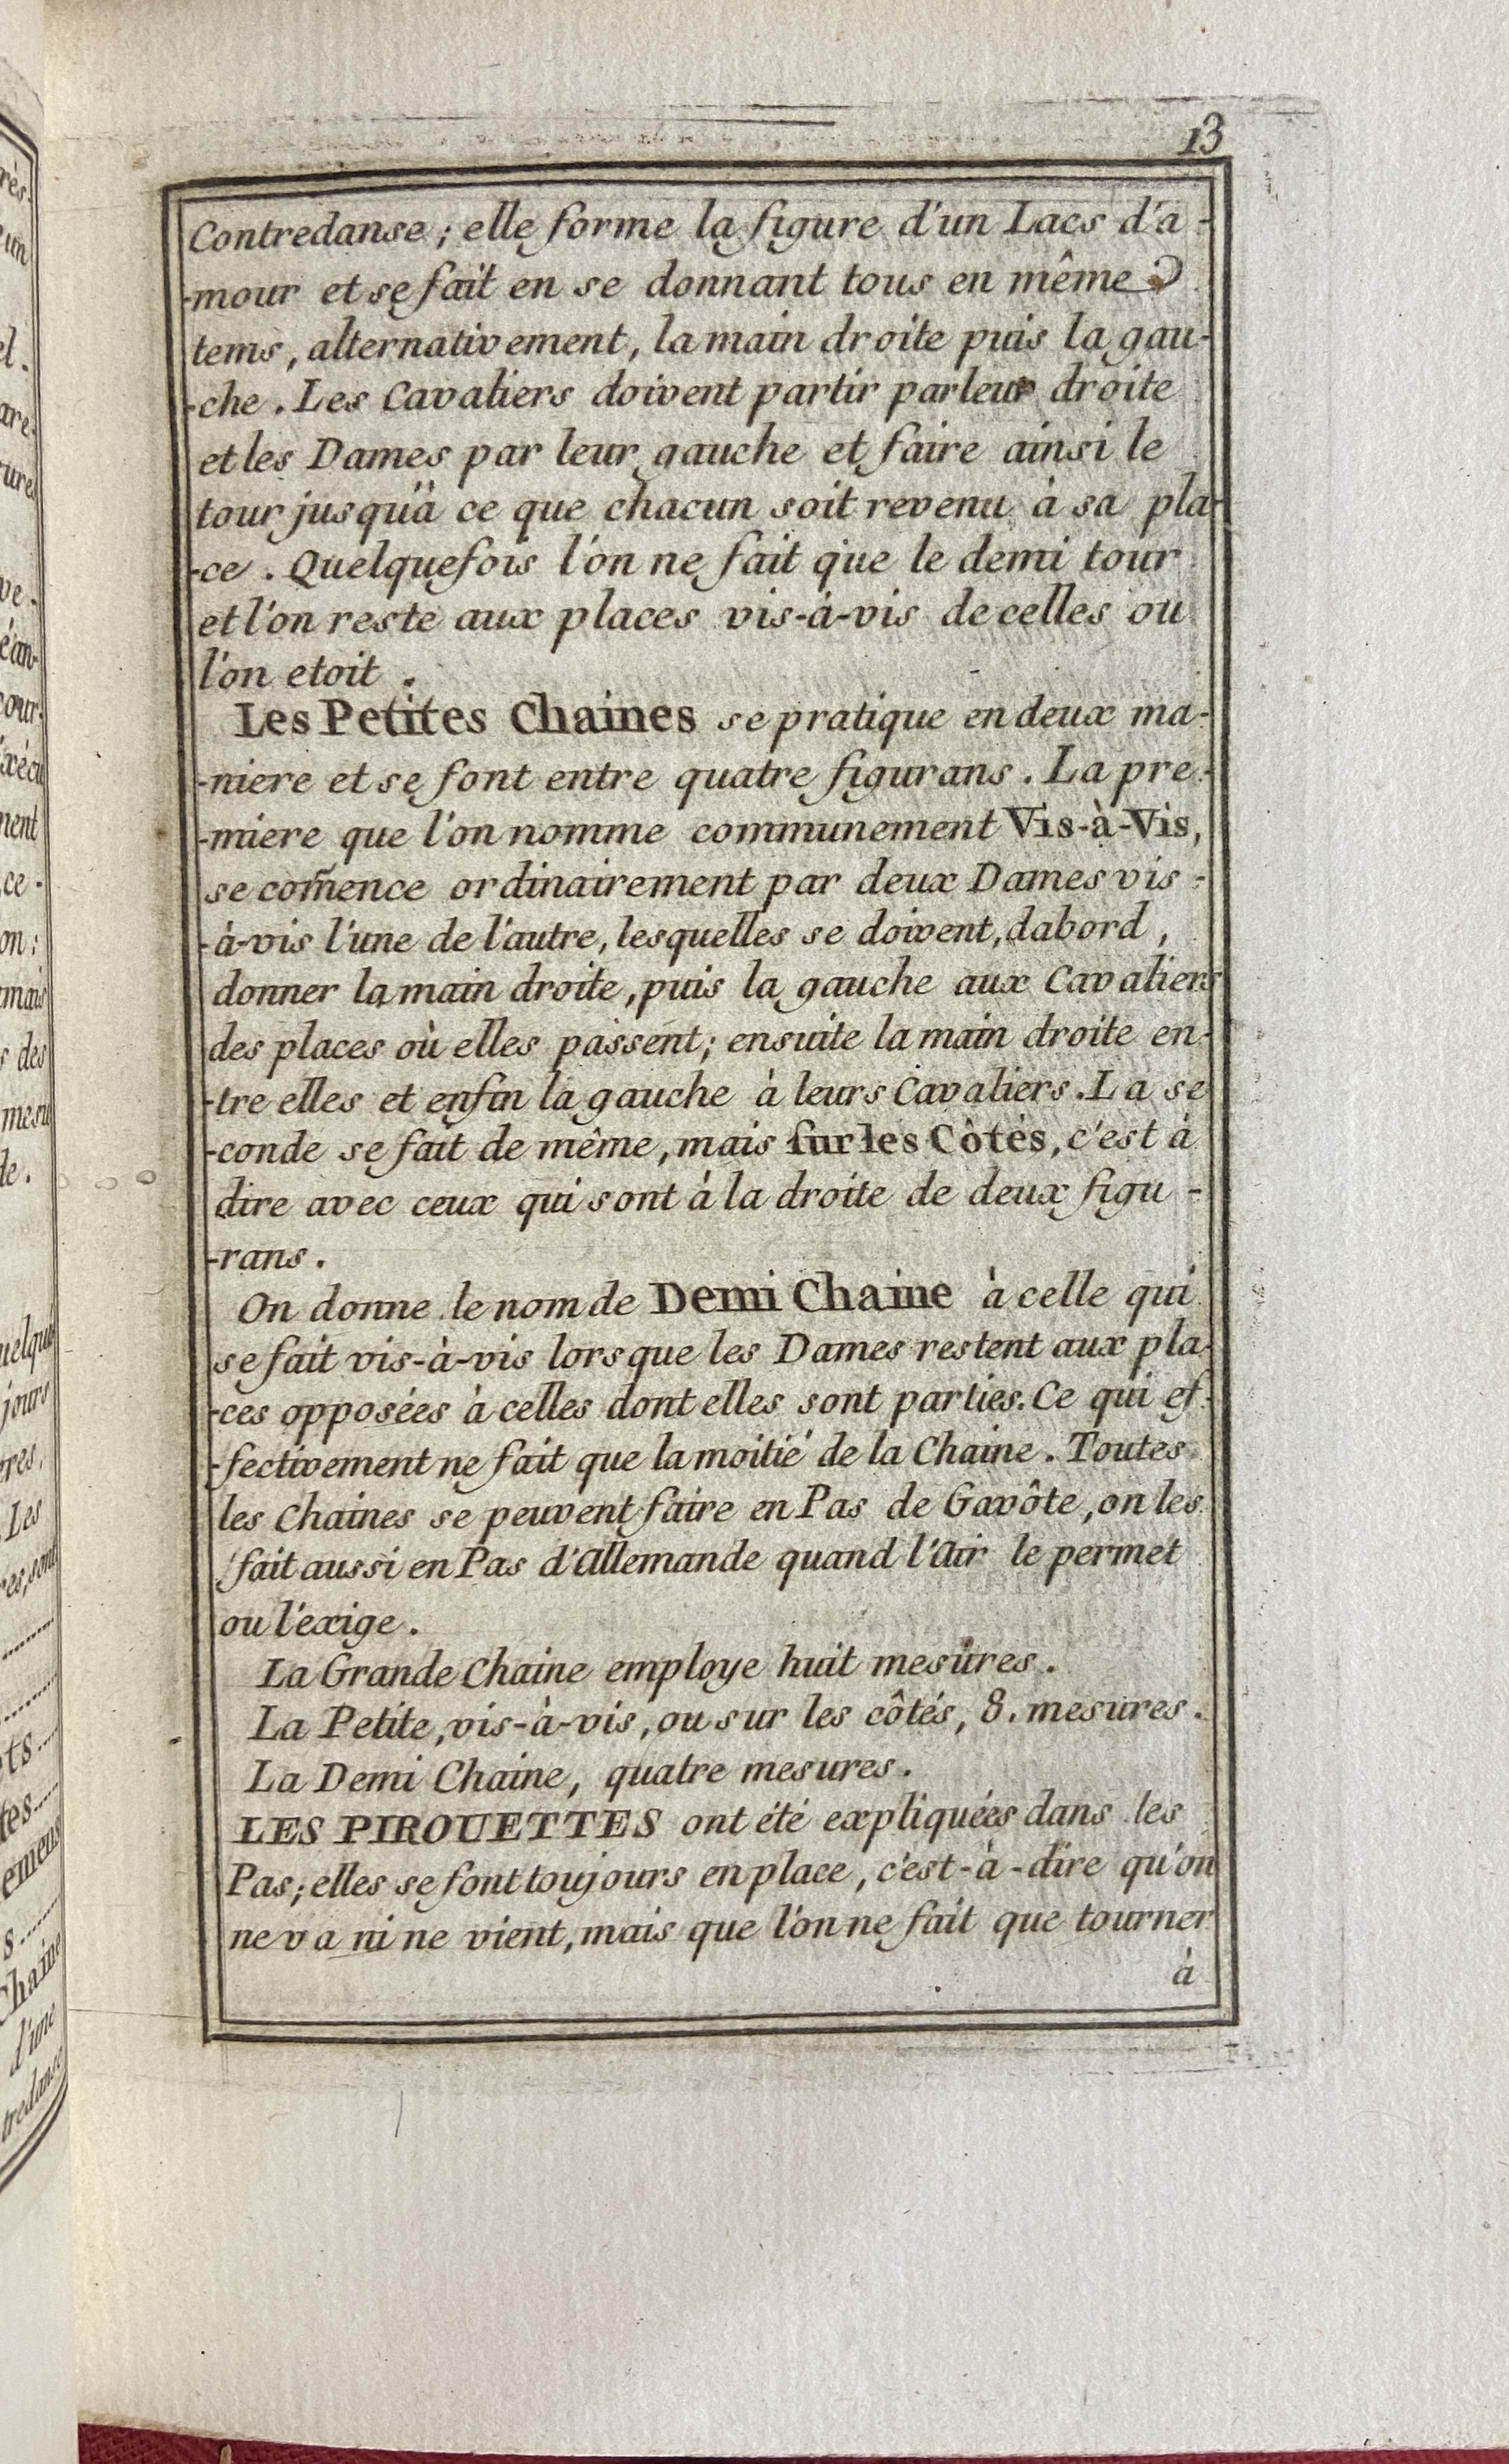 13
Contredanse; elle forme la figure d'un Lacs d'a-
-mour et se fait en se donnant tous en même
tems, alternativement, la main droite puis la gau-
-che. Les Cavaliers doivent partir par leur droite
et les Dames par leur gauche et faire ainsi le
tour jusqu'à ce que chacun soit revenu à sa pla-
-ce. Quelquefois l'on ne fait que le demi tour
et l'on reste aux places vis-à-vis de celles ou
l'on etoit.
Les Petites Chaines se pratique en deux ma-
-niere et se font entre quatre figurans. La pre-
-miere que l'on nomme communement Vis-à-Vis,
se com̃ence ordinairement par deux Dames vis-
-à-vis l'une de l'autre, lesquelles se doivent, dabord,
donner la main droite, puis la gauche aux Cavaliers
des places où elles passent; ensuite la main droite en-
-tre elles et enfin la gauche à leurs Cavaliers. La se
-conde se fait de même, mais sur les Côtés, c'est à
dire avec ceux qui sont à la droite de deux figu-
-rans.
On donne le nom de Demi Chaine à celle qui
se fait vis-à-vis lorsque les Dames restent aux pla-
-ces opposées à celles dont elles sont parties. Ce qui ef-
-fectivement ne fait que la moitié de la Chaine. Toutes
les Chaines se peuvent faire en Pas de Gavôte, on les
fait aussi en Pas d'Allemande quand l'Air le permet
ou l'éxige.
La Grande Chaine employe huit mesures.
La Petite, vis-à-vis, ou sur les côtés, 8. mesures.
La Demi Chaine, quatre mesures.
LES PIROUETTES ont été expliquées dans les
Pas; elles se font toujours en place, c'est-à-dire qu'on
ne va ni ne vient, mais que l'on ne fait que tourner
à